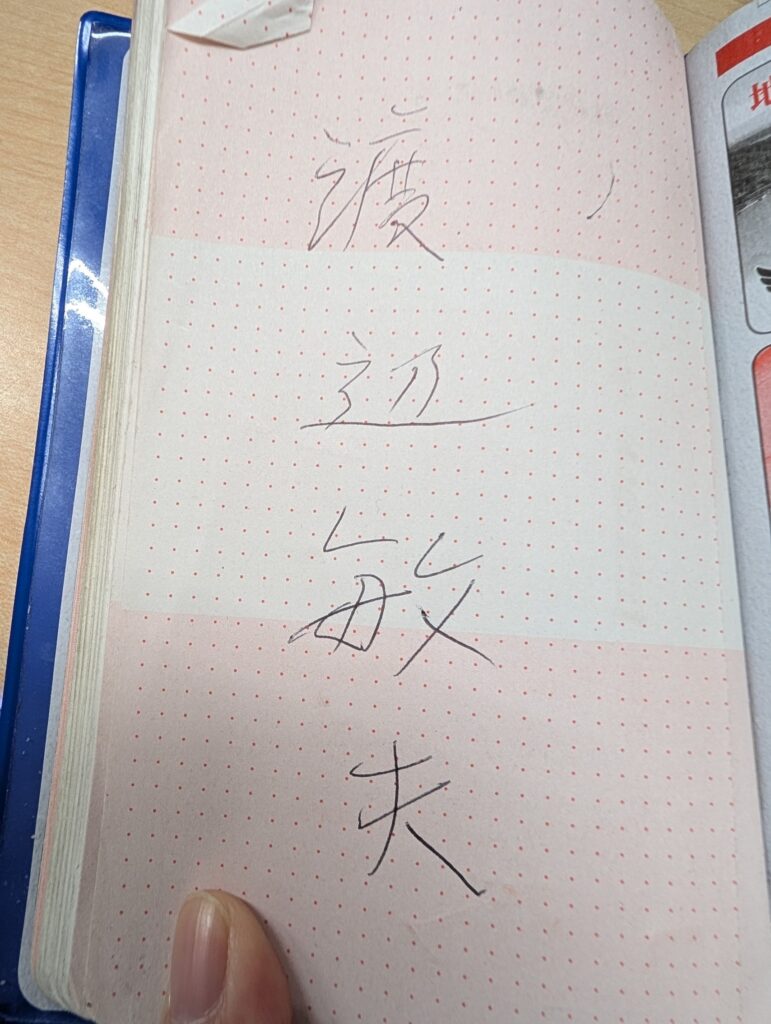 渡
辺
敏
夫
地